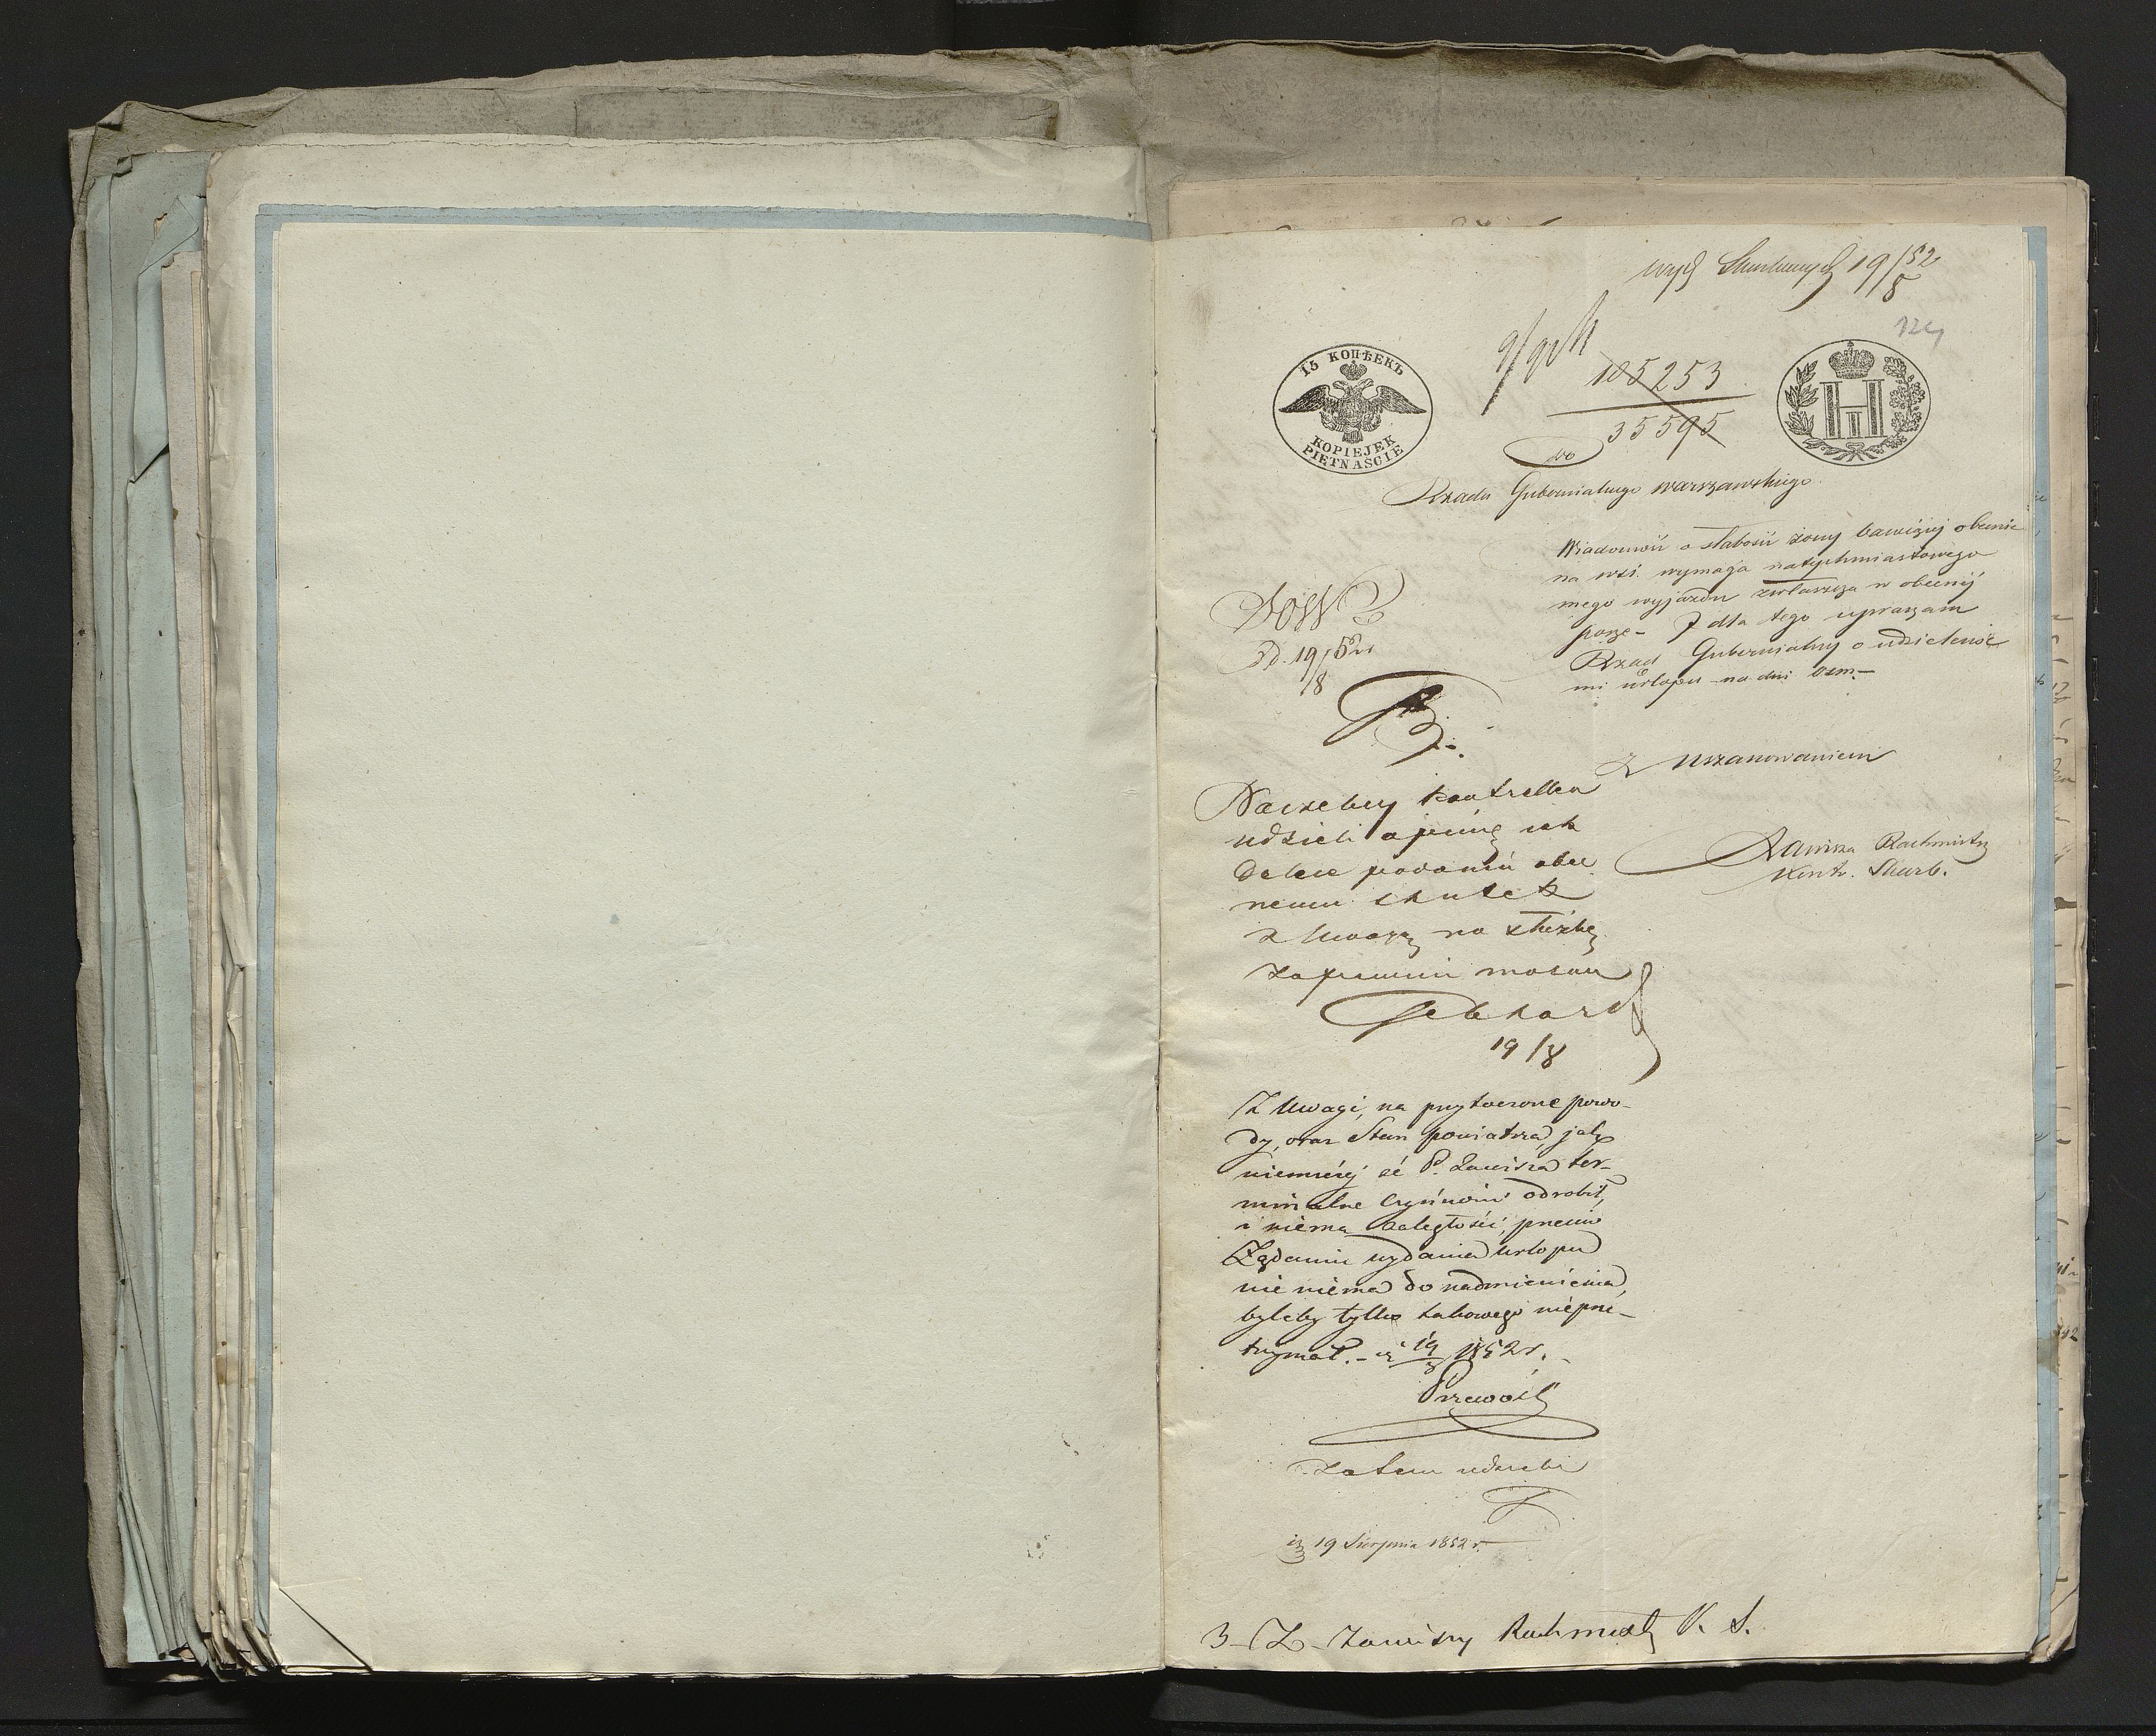 wyd Skarbowych 19/8 52
124
15 КОПѢЕКЪ
KOPIEJEK
PIĘTNAŚCIE
105253
35595
do
Rządu Gubernialnego Warszawskiego
Wiadomość o słabości żony bawiącej obecnie
na wsi wymaga natychmiastowego
mego wyjazdu zwłaszcza w obecnej
porze - I dla tego upraszam
Rząd Gubernialny o udzielenie
mi urlopu na dni osm.-
Z Uszanowaniem
Zawisza Rachmistrz
Kontr. Skarb.
19/8 52
Naczelny Kontroller
udzieli opinię jak
dalece podaniu obec
nemu skutek
z Uwagi na służbę
zapewnić można
Gebhard
19/8
Z Uwagi, na przytoczone powo-
dy, oraz Stan powietrza, jako
niemniéj że P. Zawisza ter-
minalne Czynności odrobił,
i niema zaległości, przeciw
Żądaniu wydania Urlopu
nic niema do nadmienienia,
byleby tylko takowego nieprze-
trzymał. - 19/8 1852 r.
zatem udzielić
19 Sierpnia 1852 r.
3 - Z - Zawiszy Rachmistrz K. S.